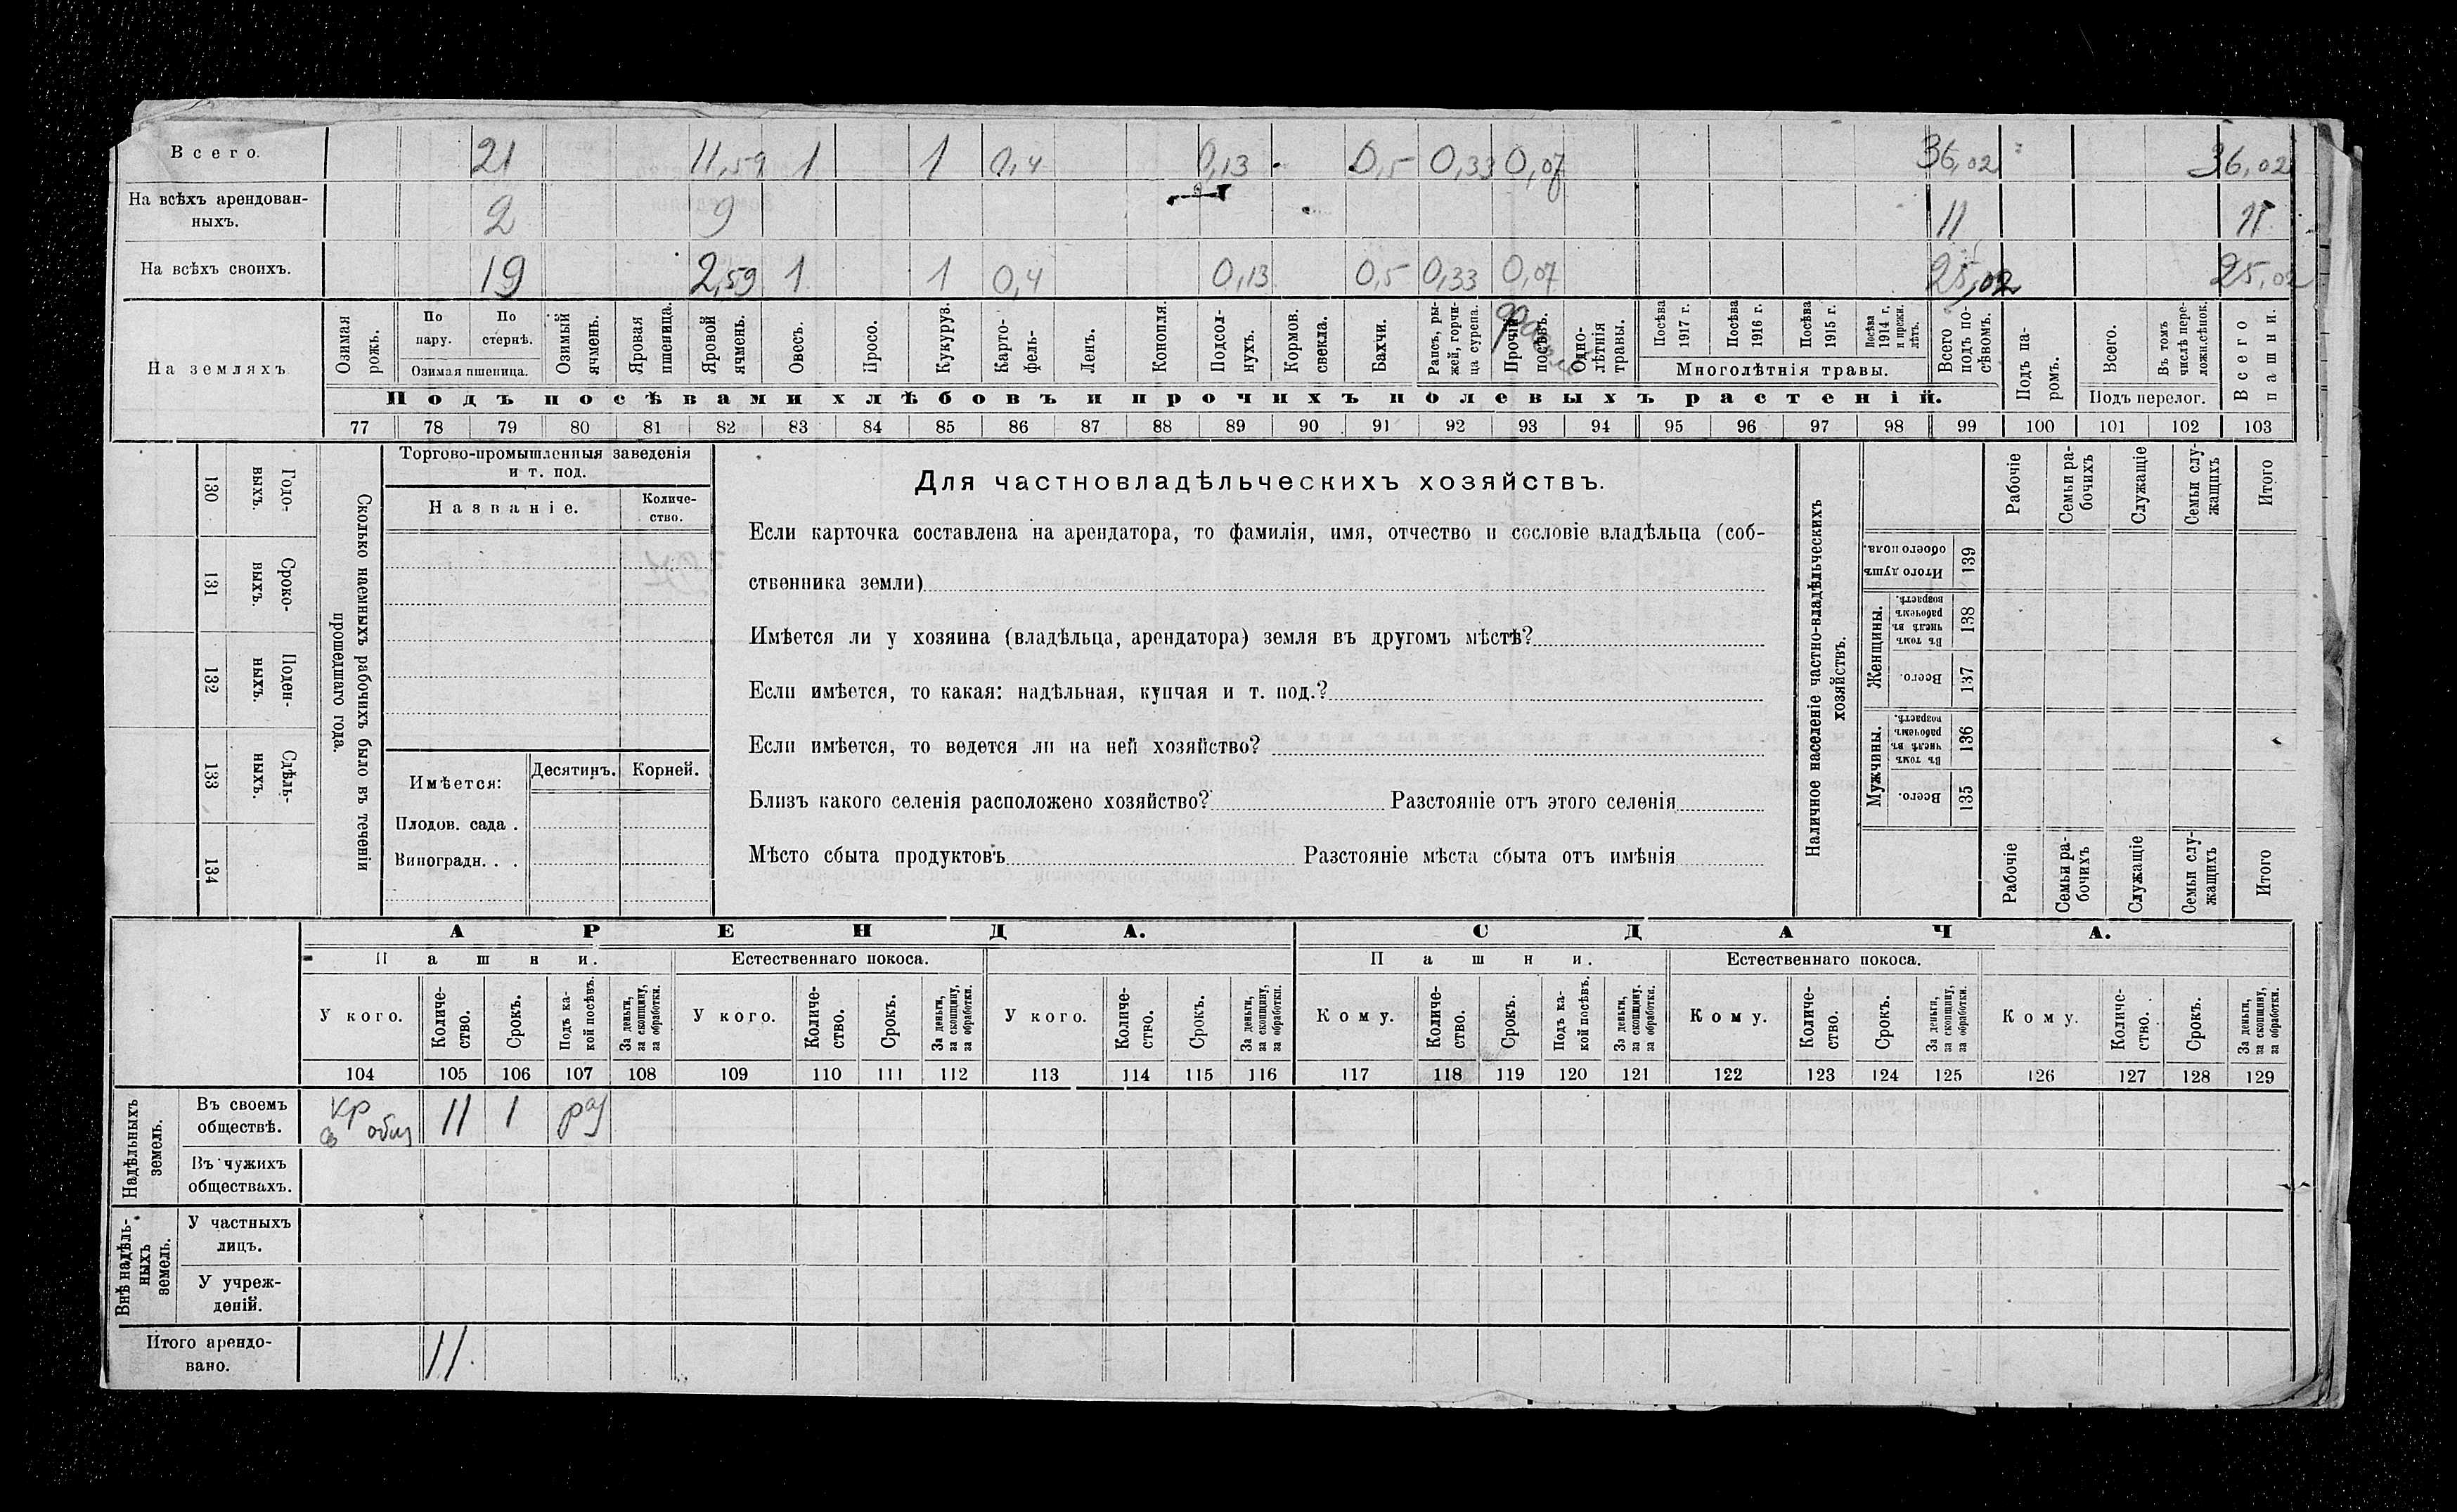 Всего. 21 11,59 1 1 0,4 0,13 0,5 0,33 0,07 36,02 36,02
На всѣхъ арендован-
ныхъ. 2 9 11 11
На всѣхъ своихъ. 19 2,59 1 1 0,4 0,13 0,5 0,33 0,07 25,02 25,02
На земляхъ
Озимая рожь.
По пару.
По стернѣ.
Озимая пшеница.
Озимый ячмень.
Яровая пшеница.
Яровой ячмень.
Овесъ.
Просо.
Кукуруз.
Карто-
фель-
Ленъ.
Конопля.
Подсол-
нухъ.
Кормов.
свекла.
Бахчи.
Рапсъ, ры-
жей, горчи-
ца сурепа.
Прочій
посѣвъ.
Одно-
лѣтнія
травы.
Посѣва 1917 г.
Посѣва 1916 г.
Посѣва 1915 г.
Посѣва 1914 г. и прежн. лѣтъ.
Многолѣтнія травы.
Всего подъ по-
сѣвомъ.
Подъ па-
ромъ.
Всего.
Въ томъ числѣ пере-
ложн.сѣнок.
Подъ перелог.
Всего пашни.
Подъ посѣвами хлѣбовъ и прочихъ полевыхъ растеній.
77 78 79 80 81 82 83 84 85 86 87 88 89 90 91 92 93 94 95 96 97 98 99 100 101 102 103
Сколько наемныхъ рабочихъ было въ теченіи
прошедшаго года.
Годо-
ныхъ.
130
Сроко-
ныхъ.
131
Поден-
ныхъ.
132
Сдѣль-
ныхъ.
133
134
Торгово-промышленныя заведенія
и т. под.
Названіе.
Количе-
ство.
Имѣется:
Десятинъ.
Корней.
Плодов. сада .
Виноградн. . .
Для частновладѣльческихъ хозяйствъ.
Если карточка составлена на арендатора, то фамилія, имя, отчество и сословіе владѣльца (соб-
ственника земли)
Имѣется ли у хозяина (владѣльца, арендатора) земля въ другомъ мѣстѣ?
Если имѣется, то какая: надѣльная, купчая и т. под.?
Если имѣется, то ведется ли на ней хозяйство?
Близъ какого селенія расположено хозяйство? Разстояніе отъ этого селенія
Мѣсто сбыта продуктовъ Разстояніе мѣста сбыта отъ имѣнія
Наличное населеніе частно-владѣльческихъ
хозяйствъ.
Рабочіе
Семьи ра-
бочихъ
Служащіе
Семьи слу-
жащихъ
Итого
Итого душъ
обоего пола.
139
Женщины.
Въ томъ числѣ въ рабочемъ возрастѣ.
138
Всего.
137
Мужчины.
Въ томъ числѣ въ рабочемъ возрастѣ.
136
Всего.
135
Рабочіе
Семьи ра-
бочихъ
Служащіе
Семьи слу-
жащихъ
Итого
АРЕНДА. СДАЧА.
Пашни. Естественнаго покоса. Пашни. Естественнаго покоса.
У кого.
Количе-
ство.
Срокъ.
Подъ ка-
кой посѣвъ.
За деньги,
за скопщину,
за обработки.
У кого.
Количе-
ство.
Срокъ.
За деньги,
за скопщину,
за обработки.
У кого.
Количе-
ство.
Срокъ.
За деньги,
за скопщину,
за обработки.
Кому.
Количе-
ство.
Срокъ.
Подъ ка-
кой посѣвъ.
За деньги,
за скопщину,
за обработки.
Кому.
Количе-
ство.
Срокъ.
За деньги,
за скопщину,
за обработки.
Кому.
Количе-
ство.
Срокъ.
За деньги,
за скопщину,
за обработки.
104 105 106 107 108 109 110 111 112 113 114 115 116 117 118 119 120 121 122 123 124 125 126 127 128 129
Надѣльныхъ
земель.
Въ своемъ
обществѣ.
кр
св общ 11 1
Въ чужихъ
обществахъ.
Внѣ надѣль-
ныхъ
земель.
У частныхъ
лицъ.
У учреж-
деній.
Итого арендо-
вано. 11.